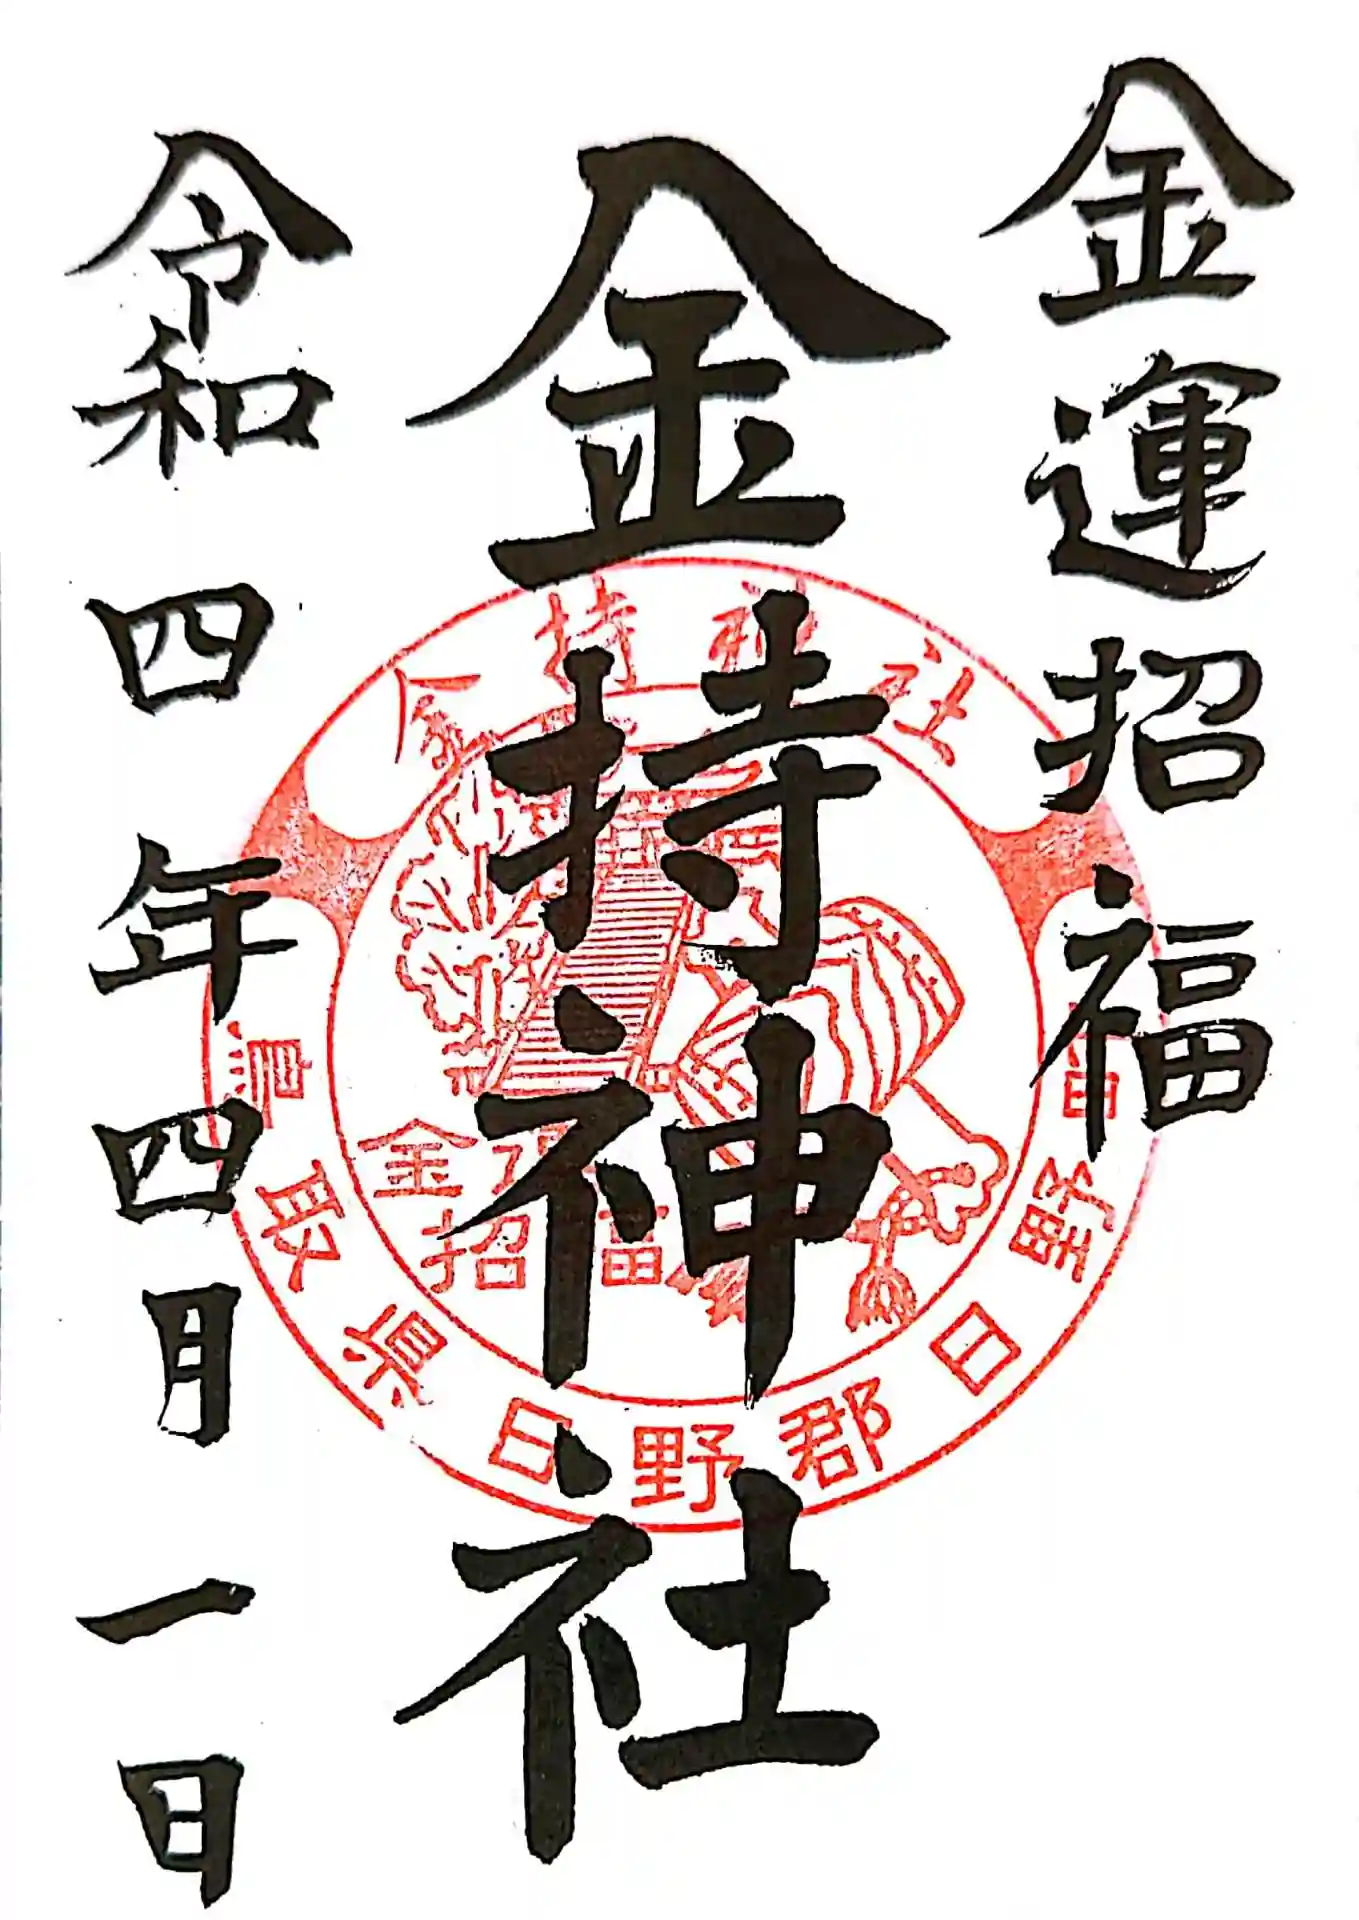 金運招福
金持神社
令和四年四月一日
金持神社
鳥取県日野郡日野町
金運
招福